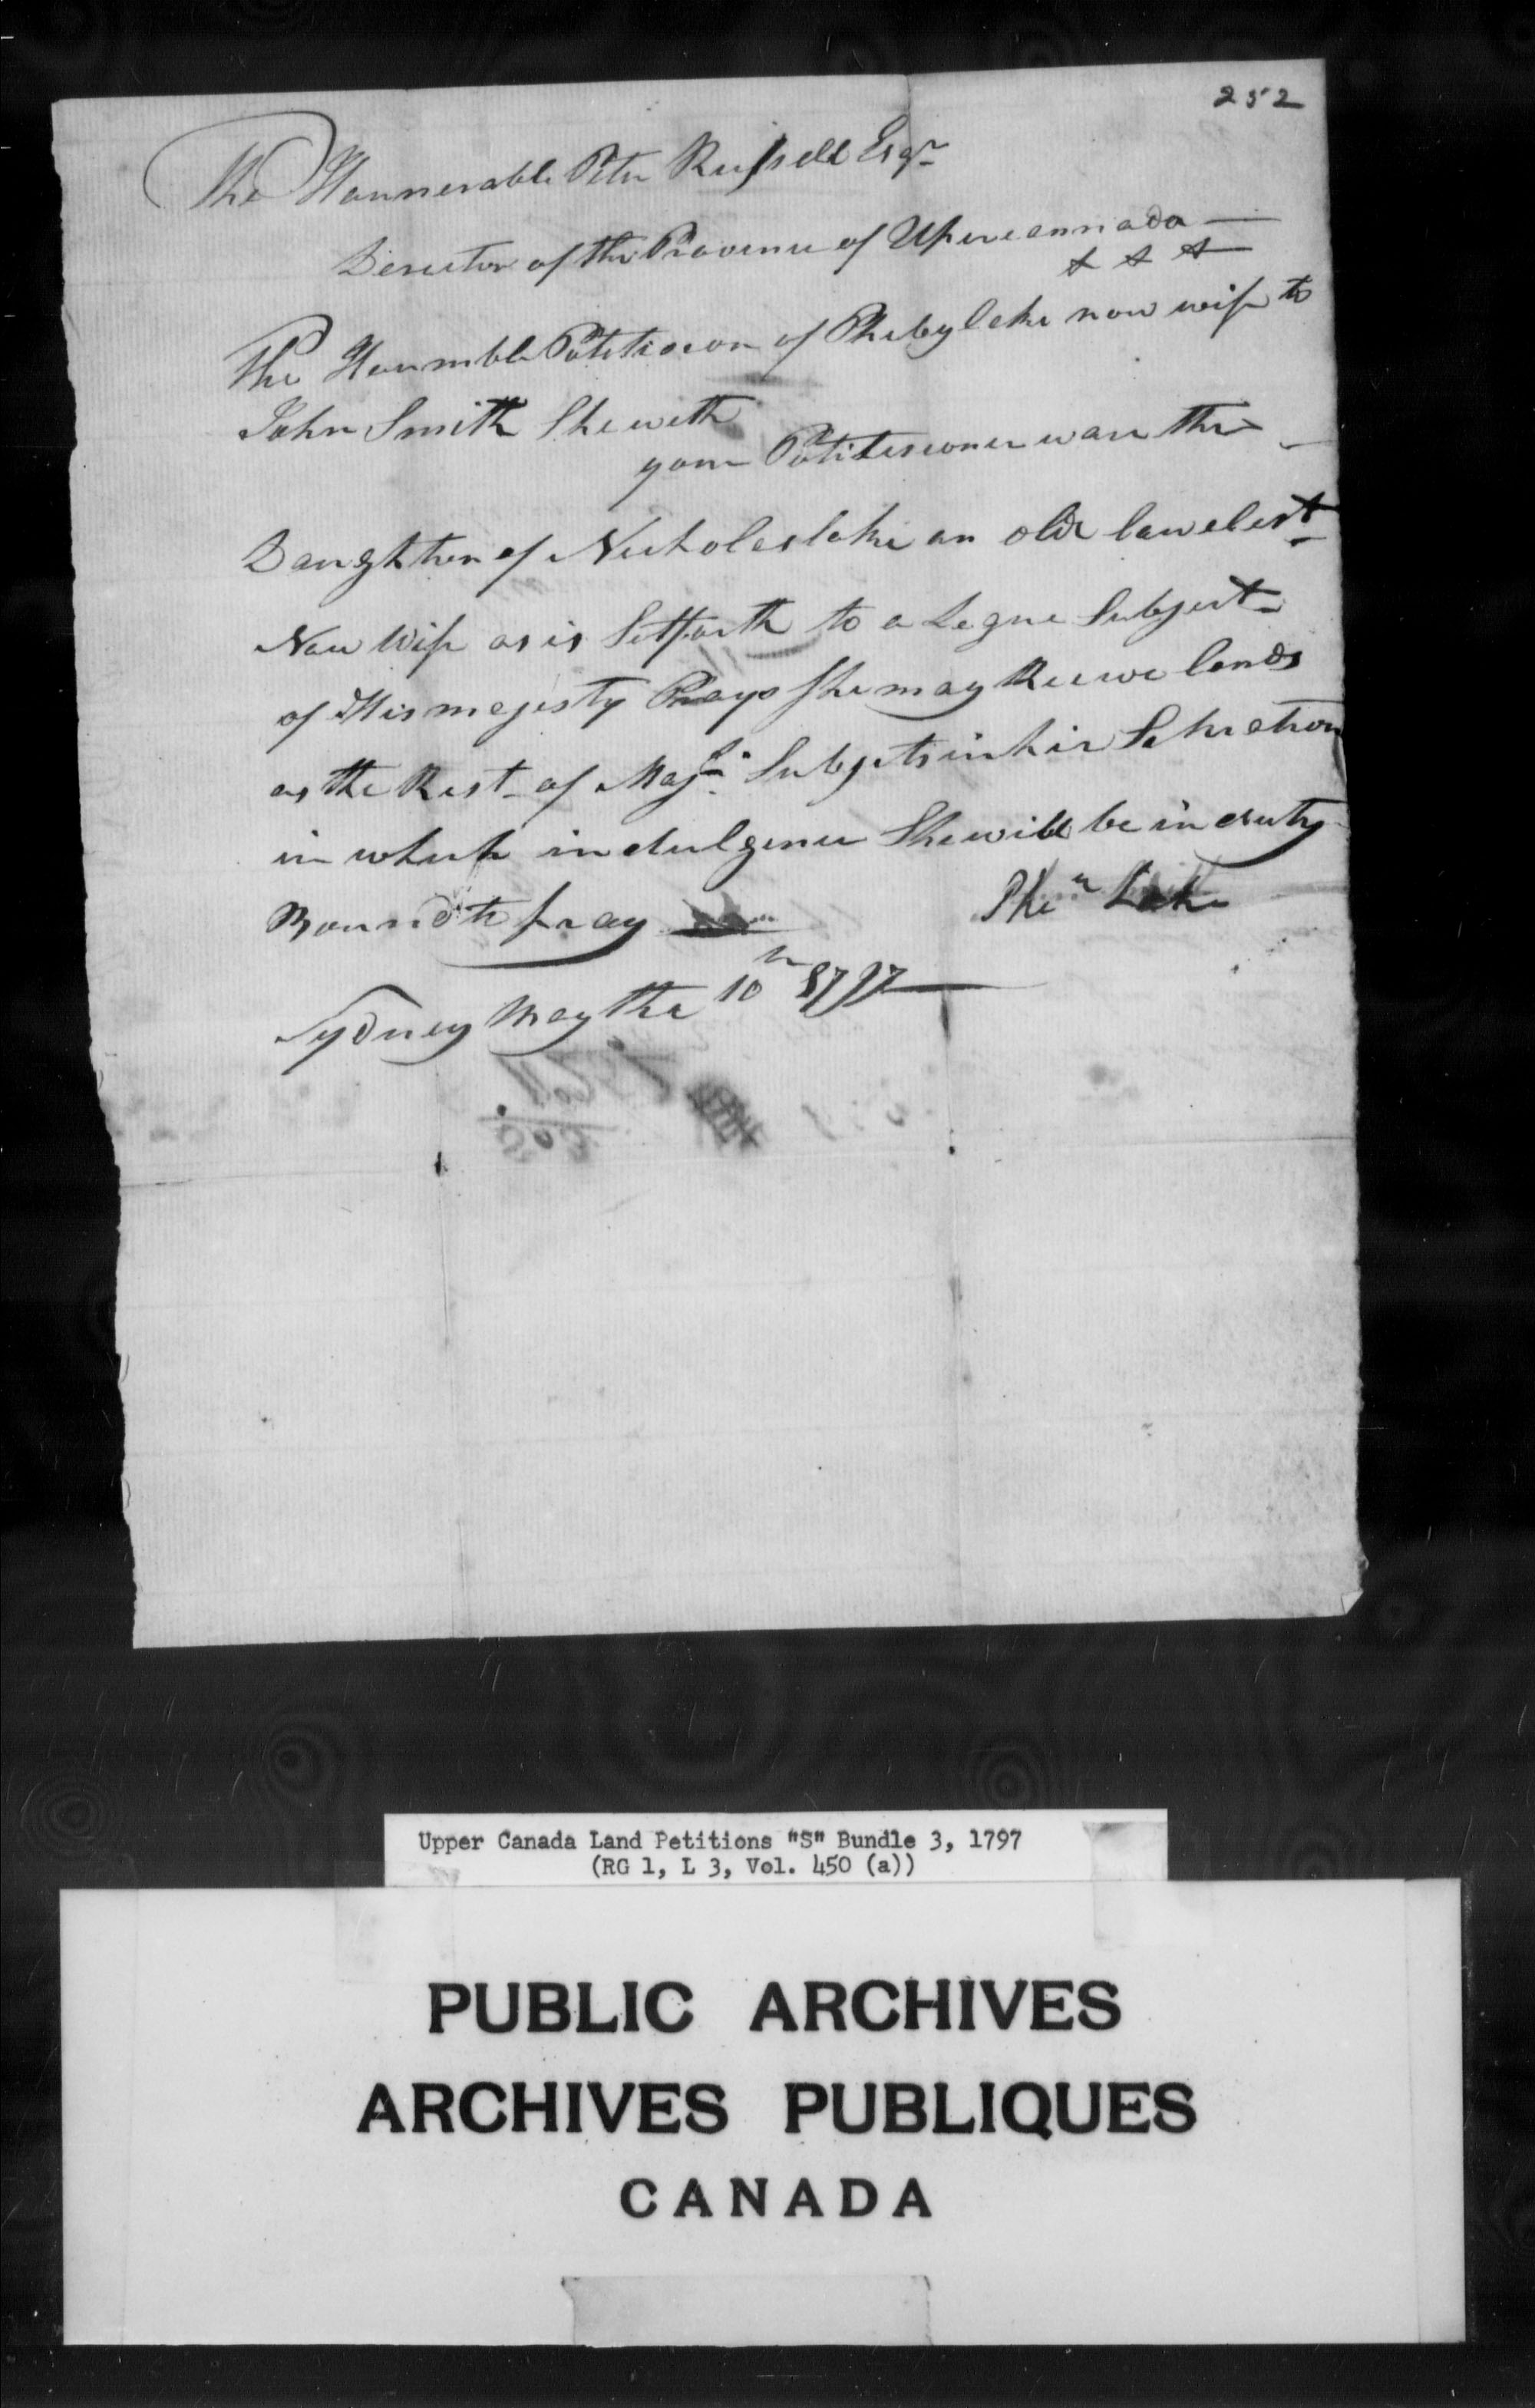 252
The Hounnerable Peter Russell Esqr
Derector of the Provence of Upercannada
& & &
The Houmble Petiteseon of Pheby lake now wife to
John Smith Sheweth
your Petiteseoner ware the
Daughter of Nicholas lake an old lawelest
Now Wife as is Setforth to a Legue Subject
of His majesty Prays She may Receive lands
as the Rest of Maj Subjets in hir Setuation
in which indulgence She will be in duty
Bound to pray
Phe Lake
Sydney May the 10th 1797
Upper Canada Land Petitions "S" Bundle 3, 1797
(RG 1, L 3, Vol. 450 (a))
PUBLIC ARCHIVES
ARCHIVES PUBLIQUES
CANADA